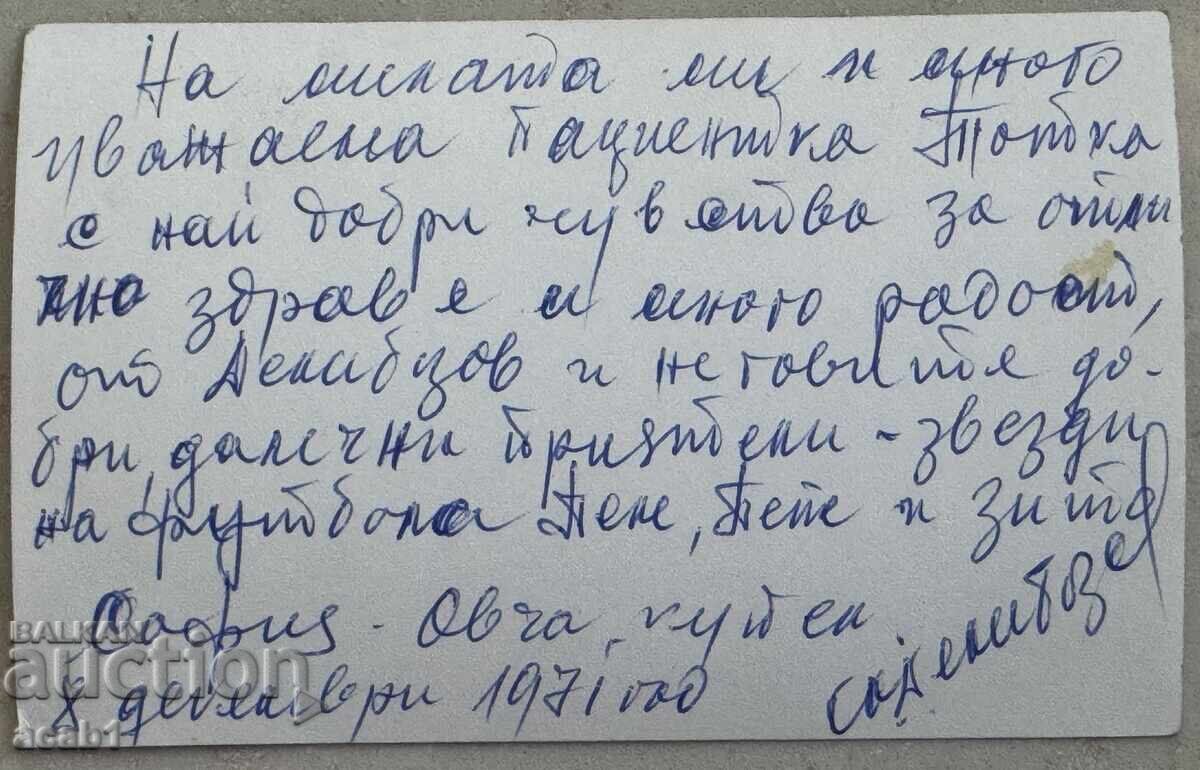 На милата ми и много
уважаема пациентка Тотка
с най добри чувства за отли
чно здраве и много радост,
от Делибозов и неговите до-
бри, далечни приятели - звезди
на футбола Пеле, Пепе и Зито
София - Овча купел
8 декември 1971 год
BALKAN
auction
acab1